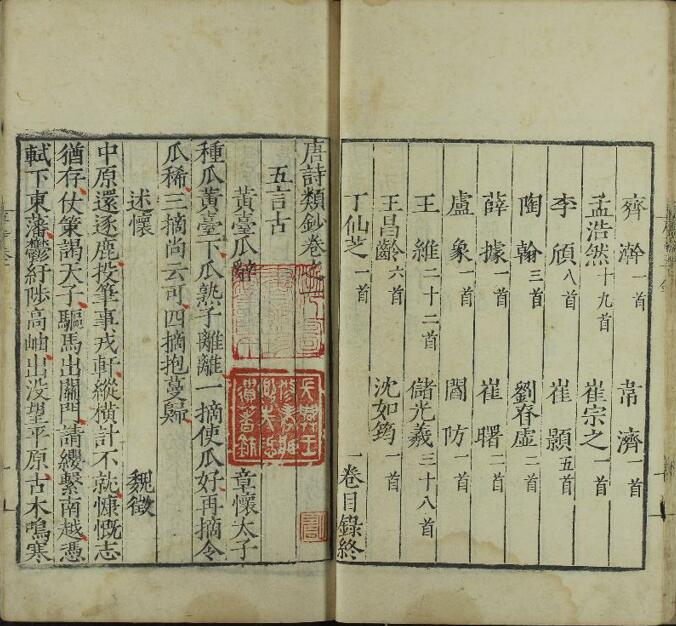 齊澣一首 韋濟一首
孟浩然十九首 崔宗之一首
李頎八首 崔顥五首
陶翰三首 劉眘虛二首
薛據一首 崔曙二首
盧象一首 閻防一首
王維二十二首 儲光羲三十八首
王昌齡六首 沈如筠一首
丁仙芝一首 一卷目錄終
唐詩類鈔卷之
五言古
黃臺瓜辭 章懷太子
種瓜黃臺下瓜熟子離離一摘使瓜好再摘令
瓜稀三摘尚云可四摘抱蔓歸
述懷 魏徵
中原還逐鹿投筆事戎軒縱橫計不就慷慨志
猶存仗策謁天子驅馬出關門請纓繫南越憑
軾下東藩鬱紆陟高岫出沒望平原古木鳴寒